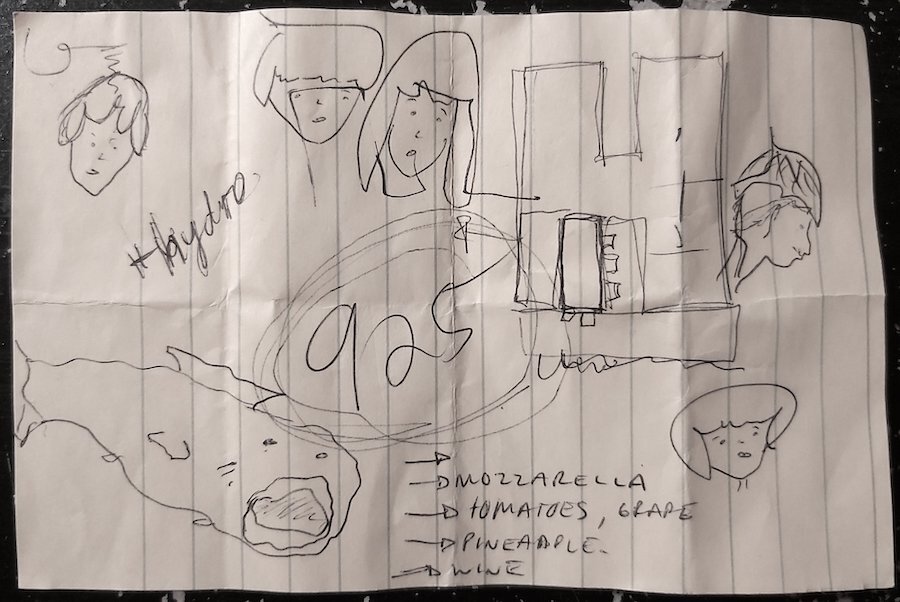 #Hydro
925
MOZZARELLA
TOMATOES, GRAPE
PINEAPPLE.
WINE